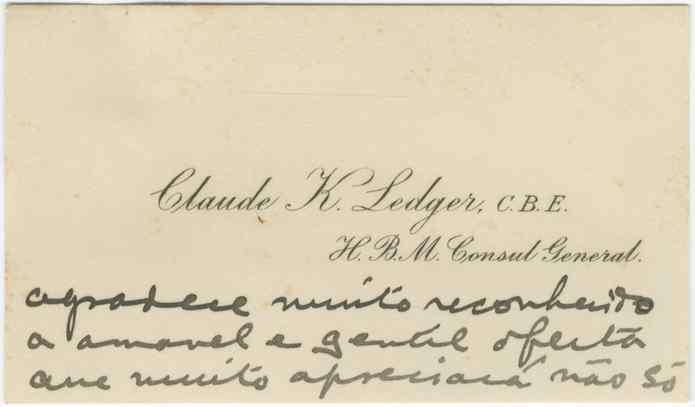 Claude K. Ledger, C.B.E.
H.B.M. Consul General.
agradece muito reconhecido
a amavel e gentil oferta
que muito apreciará não só